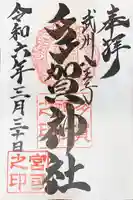 奉拝
武州八王子
多賀神社
令和六年三月三十日
宮司之印